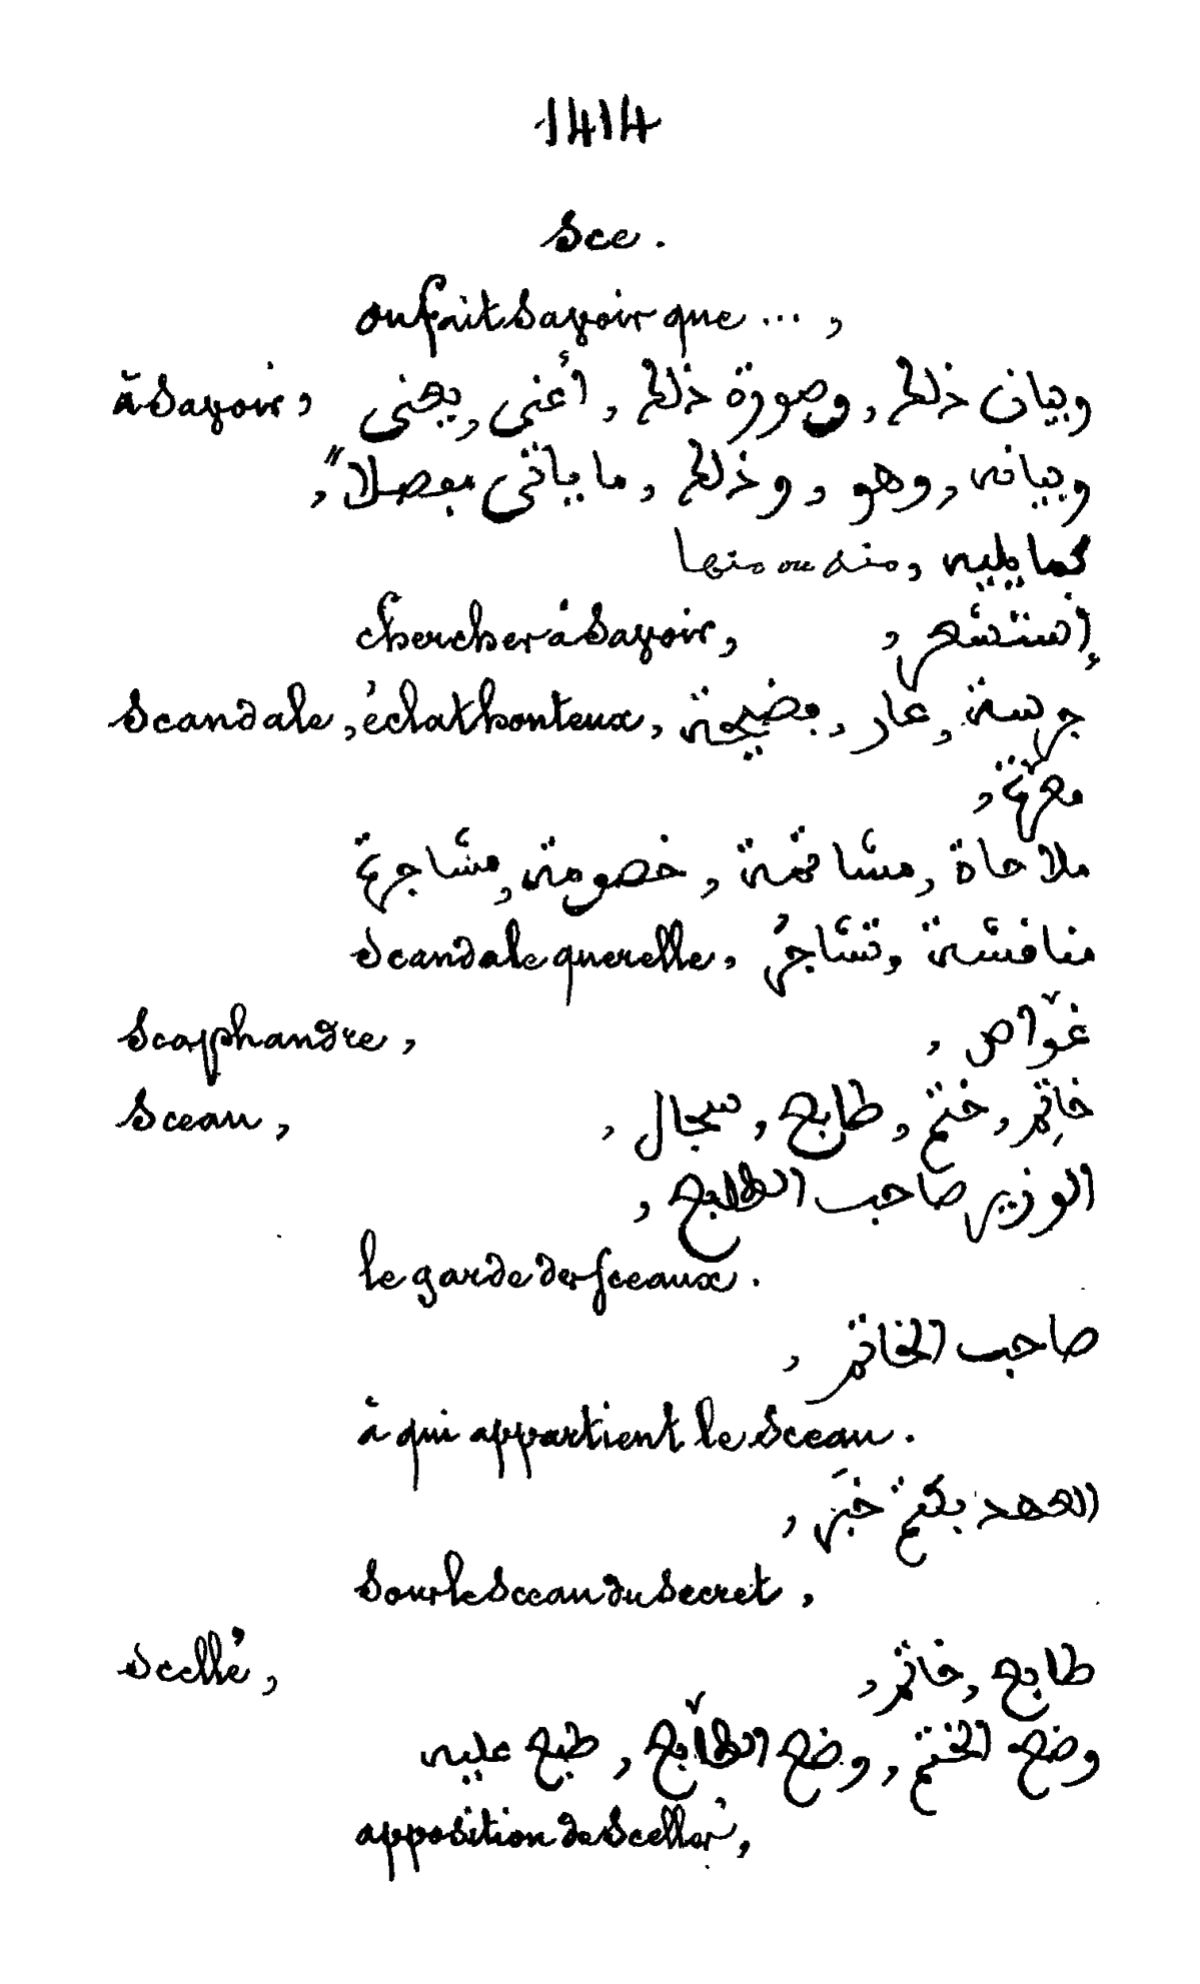 1414
Sce.
on fait savoir que ...,
à savoir, وبيان ذلك, وصورة ذلك, أعني, يعني
وبيانه, وهو, وذلك, ما ياتي مفصلاً,
كما يليه, منه ou منها
chercher à savoir, إستشعر,
scandale, éclat honteux, جرسة, عار, فضيحة,
معرّة,
ملاحاة, مشاتمة, خصومة, مشاجرة
scandale querelle, منافشة, تشاجرُ
scaphandre, غوّاص,
sceau, خاتِم, ختم, طابع, سجال,
الوزير صاحب الطابع,
le garde des sceaux.
صاحب الخاتم,
à qui appartient le sceau.
العهد بكتم خبَر,
sous le sceau du secret,
scellé, طابع, خاتم,
وضع الختم, وضع الطّابع, طبع عليه
apposition de scellés,